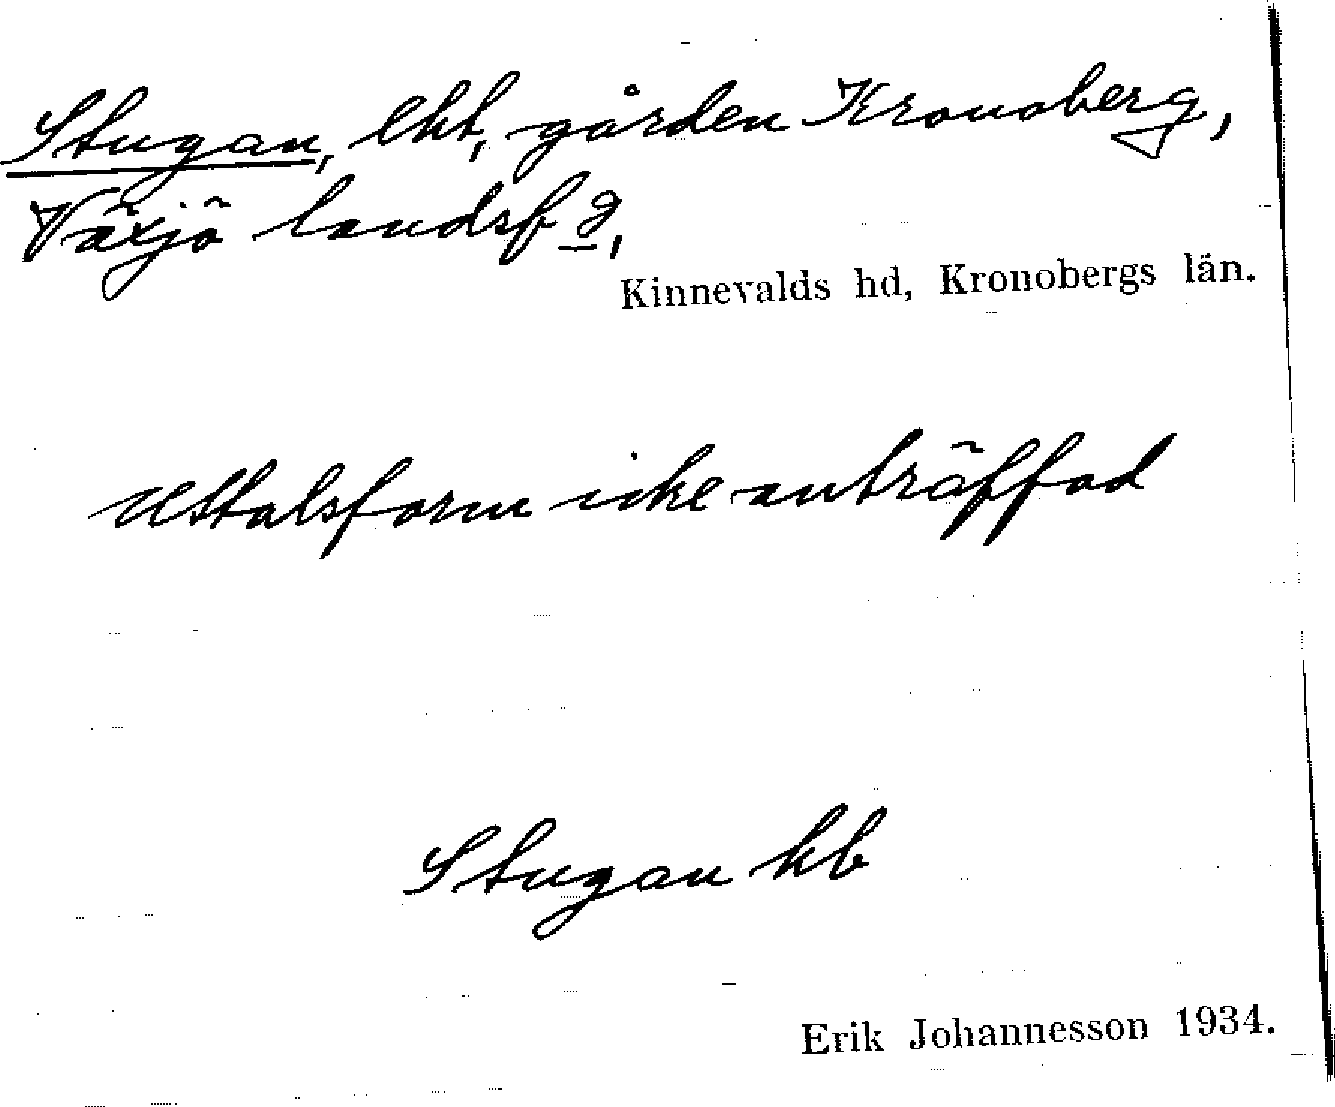 Stugan, lht, gården Kronoberg,
Växjö landsf g,
Kinnevalds hd, Kronobergs län.
Uttalsform icke anträffad
Stugan hb
Erik Johannesson 1934.